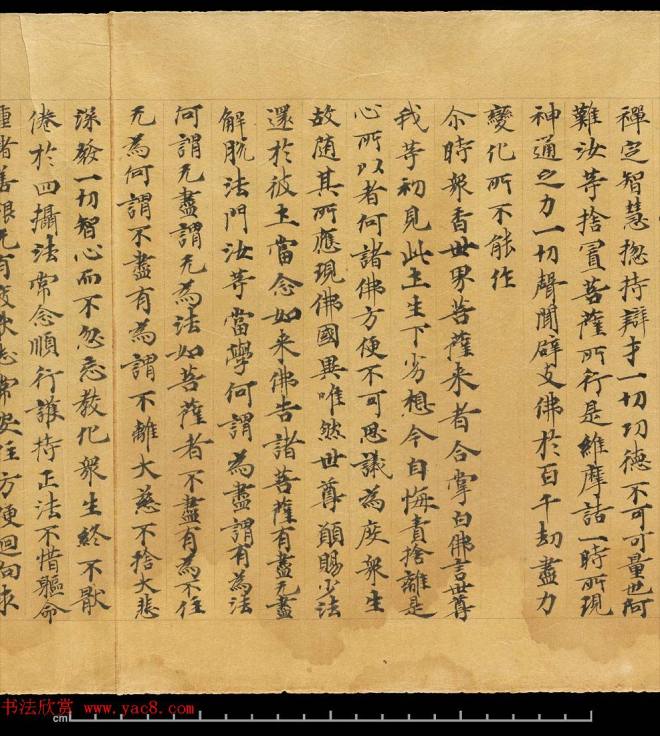 禪定智慧揔持辯才一切功德不可可量世阿
難汝等捨置菩薩所行是維摩詰一時所現
神通之力一切聲聞辟支佛於百千劫盡力
變化所不能作
尒時衆香世界菩薩来者合掌白佛言世尊
我等初見此土生下劣想今自悔責捨離是
心所以者何諸佛方便不可思議為度衆生
故随其所應現佛國異唯然世尊願賜少法
還於彼土當念如来佛告諸菩薩有盡无盡
解脫法門汝等當學何謂為盡謂有為法
何謂无盡謂无為法如菩薩者不盡有為不住
无為何謂不盡有為謂不離大慈不捨大悲
深發一切智心而不忽忘教化衆生終不猒
倦於四攝法常念順行護持正法不惜軀命
種諸善根无有疲猒志常安住方便迴向求
书法欣赏 www.yac8.com
cm